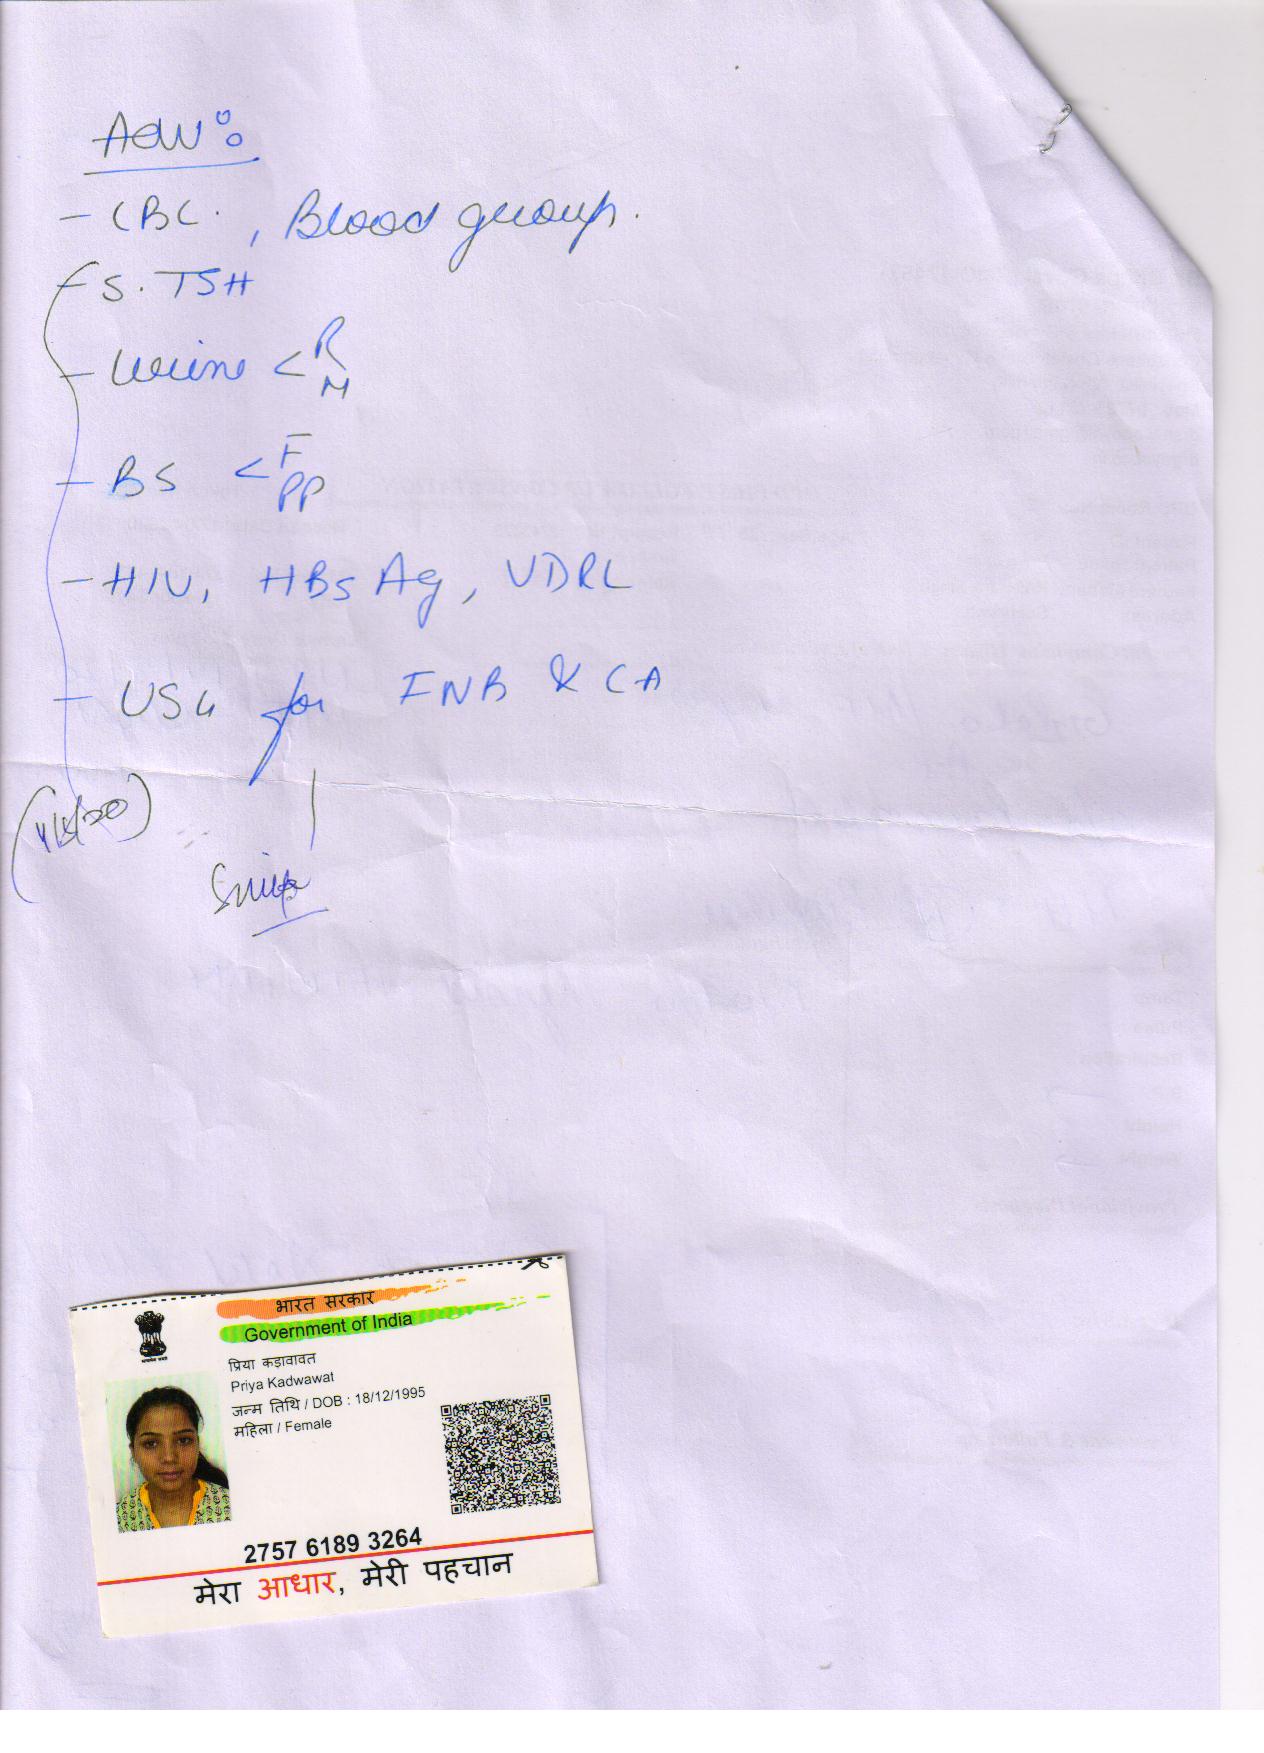 Adv :
- CBC. , Blood group.
- S. TSH
- Urine < R
M
- BS < F
PP
- HIV, HBsAg, VDRL
- USG for FNB & CA
भारत सरकार
Government of India
प्रिया कड़ावावत
Priya Kadwawat
जन्म तिथि / DOB : 18/12/1995
महिला / Female
2757 6189 3264
मेरा आधार, मेरी पहचान